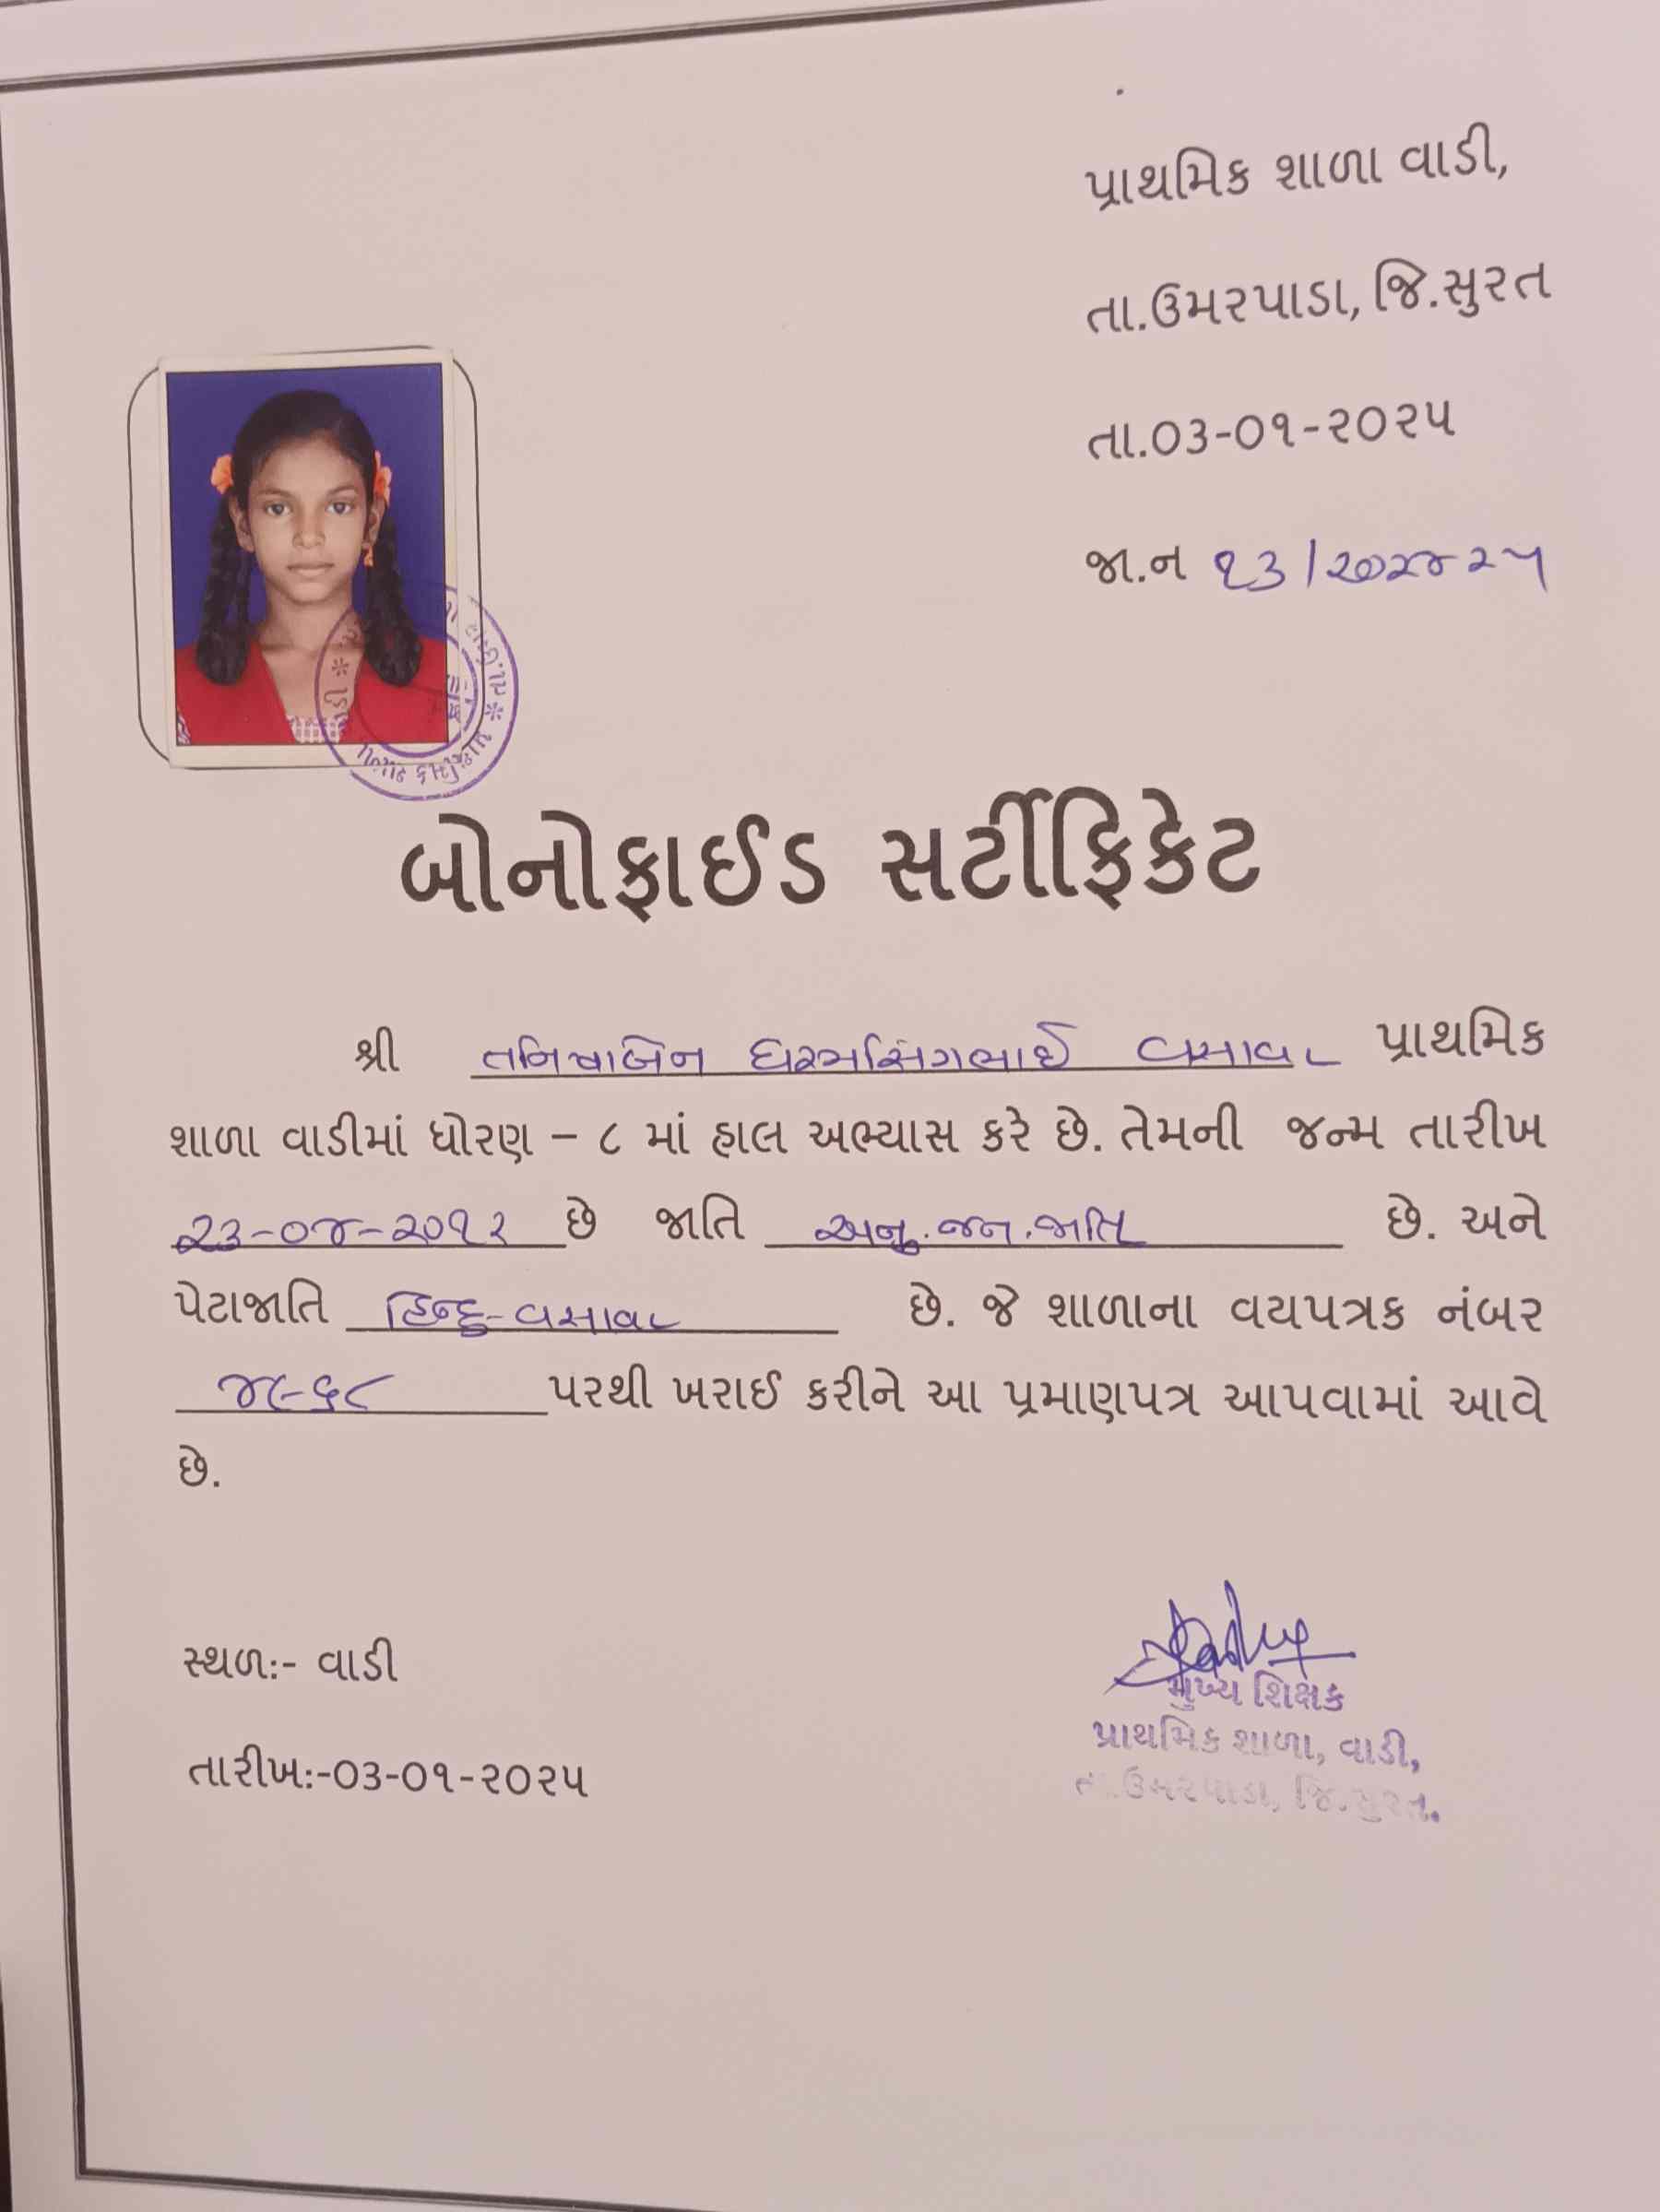 પ્રાથમિક શાળા વાડી,
તા.ઉમરપાડા, જિ.સુરત
તા.૦૩-૦૧-૨૦૨૫
જા.ન ૧૩/૨૦૨૪૨૫
બોનોફાઈડ સર્ટીફિકેટ
શ્રી તનિષાબેન ધરમસિંગભાઈ વસાવા પ્રાથમિક
શાળા વાડીમાં ધોરણ – ૮ માં હાલ અભ્યાસ કરે છે. તેમની જન્મ તારીખ
૨૩-૦૪-૨૦૧૨ છે જાતિ અનુ.જન.જાતિ છે. અને
પેટાજાતિ હિન્દુ-વસાવા છે. જે શાળાના વયપત્રક નંબર
પરથી ખરાઈ કરીને આ પ્રમાણપત્ર આપવામાં આવે
છે.
સ્થળ:- વાડી
તારીખ:-૦૩-૦૧-૨૦૨૫
મુખ્ય શિક્ષક
પ્રાથમિક શાળા, વાડી,
તા.ઉમરપાડા, જિ.સુરત.